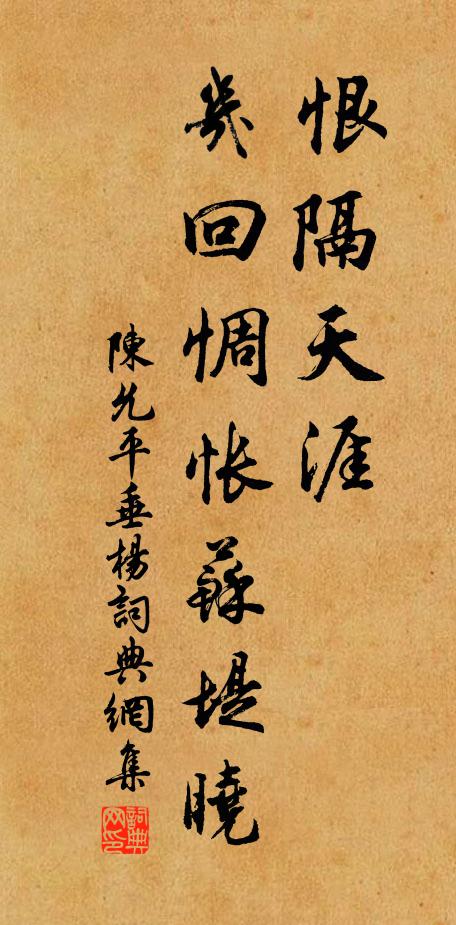 恨隔天涯
幾回惆悵蘇堤曉
陳允平垂楊詞典網集
詞典网印